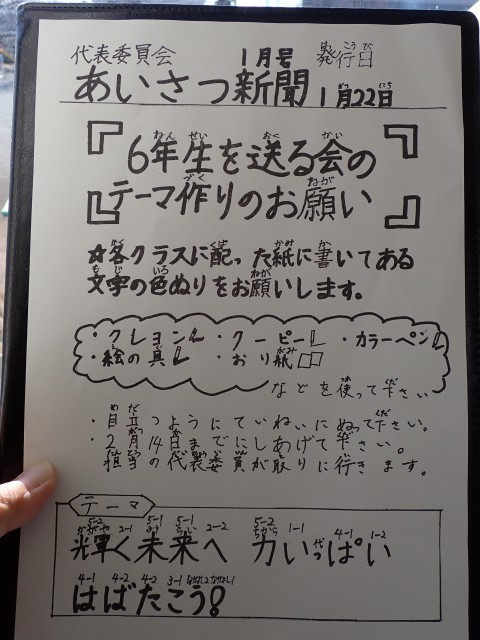 代表委員会 1月号 発行日
あいさつ新聞 1月22日
『6年生を送る会の
テーマ作りのお願い』
☆各クラスに配った紙に書いてある
文字の色ぬりをお願いします。
・クレヨン ・クーピー ・カラーペン
・絵の具 ・おり紙
などを使って下さい
・目立つようにていねいにぬって下さい。
・2月14日までにしあげて下さい。
担当の代表委員が取りに行きます。
テーマ
5-2 2-1 5-1 5-1 2-2 5-2 1-1 4-1 1-2
輝く未来へ 力いっぱい
4-1 4-2 4-2 3-1
はばたこう!